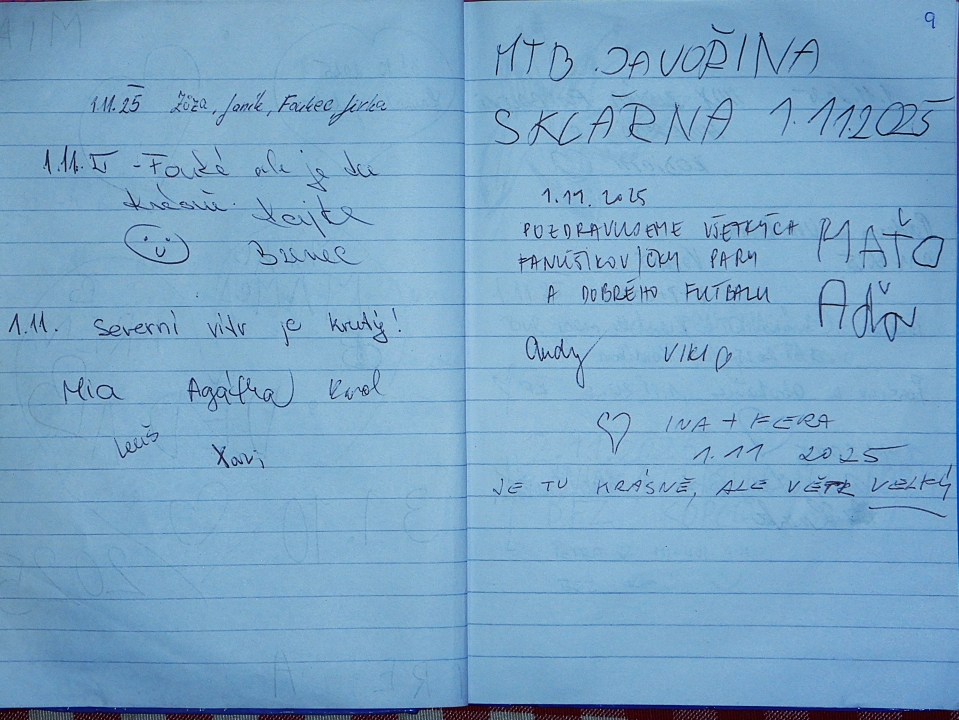 1.11.25 Žoža, Janík, Jirka
1.11. - Fouká ale je tu
krásně. Kajka
Brunec
1.11. Severní vítr je krutý!
Mia Agátka Karol
Xavi
9
MTB JAVOŘINA
SKLÁRNA 1.11.2025
1.11.2025
POZDRAVUJEME VŠETKÝCH
FANÚŠIKOV/ČKY PARY
A DOBRÉHO FUTBALU
MAŤO
Aďov
Andy VIKI
INA + FERA
1.11 2025
JE TU KRÁSNĚ, ALE VĚTR VELKÝ